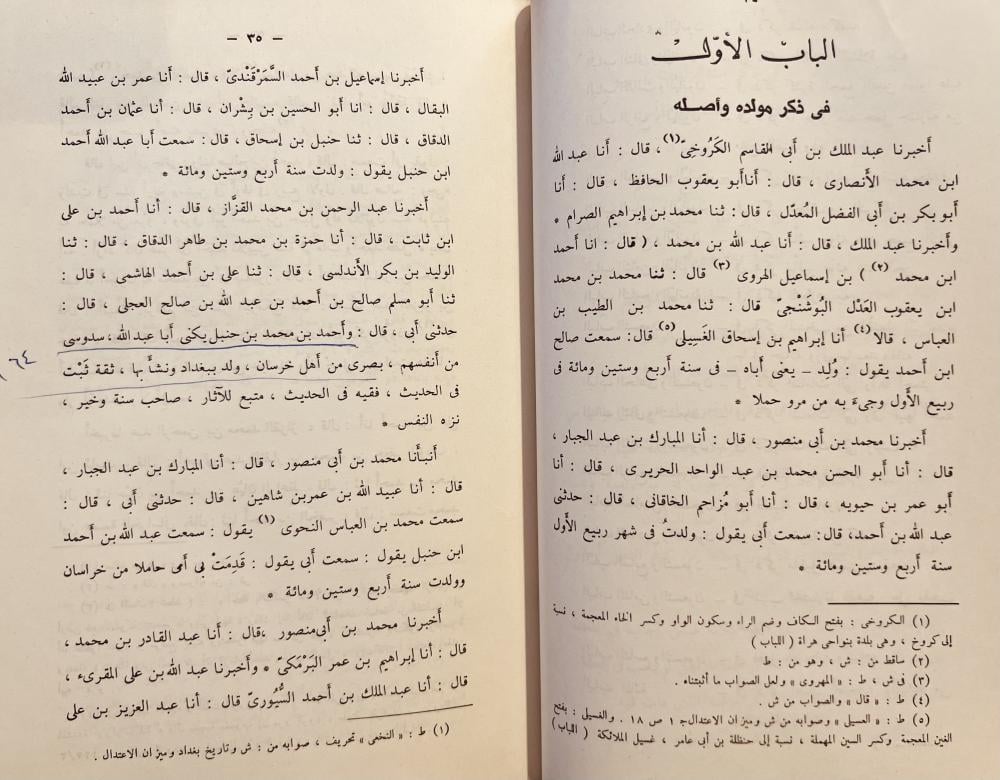 الباب الأوّل
فى ذكر مولده وأصله
أخبرنا عبد الملك بن أبى القاسم الكَرُوخِىّ(١) ، قال : أنا عبد الله
ابن محمد الأنصارى ، قال : أناأبو يعقوب الحافظ ، قال : أنا
أبو بكر بن أبى الفضل المُعدّل ، قال : ثنا محمد بن إبراهيم الصرام *
وأخبرنا عبد الملك ، قال : أنا عبد الله بن محمد ، ( قال : انا أحمد
ابن محمد (٢) ) بن إسماعيل الهروى (٣) قال : ثنا محمد بن محمد
ابن يعقوب العَدْل البُوشَنْجىّ قال : ثنا محمد بن الطيب بن
العباس ، قالا(٤) أنا إبراهيم بن إسحاق الغَسِيلى(٥) قال: سمعت صالح
ابن أحمد يقول : وُلِد – يعنى أباه – فى سنة أربع وستين ومائة فى
ربيع الأول وجىءَ به من مرو حملا *
أخبرنا محمد بن أبى منصور ، قال : أنا المبارك بن عبد الجبار ،
قال : أنا أبو الحسن محمد بن عبد الواحد الحريرى ، قال : أنا
أبو عمر بن حيويه ، قال : أنا أبو مُزاحم الخاقانى ، قال : حدثنى
عبد الله بن أحمد، قال: سمعت أبى يقول : ولدتُ فى شهر ربيع الأول
سنة أربع وستين ومائة *
(١) الكروخى : بفتح الكاف وضم الراء وسكون الواو وكسر الخاء المعجمة ، نسبة
إلى كروخ ، وهى بلدة بنواحى هراة ( اللباب )
(٢) ساقط من : ش ، وهو من : ط
(٣) فى ش ، ط : « المهروى » ولعل الصواب ما أثبتناه .
(٤) ط : « قال » والصواب من ش .
(٥) ط : « العسيل » وصوابه من ش وميزان الاعتدال جـ ١ ص ١٨ . والغسيل : بفتح
الغين المعجمة وكسر السين المهملة ، نسبة إلى حنظلة بن أبى عامر ، غسيل الملائكة ( اللباب )
– ٣٥ –
أخبرنا إسماعيل بن أحمد السَّمَرْقَندىّ ، قال : أنا عمر بن عبيد الله
البقال ، قال : انا أبو الحسين بن بِشْران ، قال : انا عثمان بن أحمد
الدقاق ، قال : ثنا حنبل بن إسحاق ، قال : سمعت أبا عبد الله أحمد
ابن حنبل يقول : ولدت سنة أربع وستين ومائة *
أخبرنا عبد الرحمن بن محمد القزَّاز ، قال : أنا أحمد بن على
ابن ثابت ، قال : أنا حمزة بن محمد بن طاهر الدقاق ، قال : ثنا
الوليد بن بكر الأندلسى ، قال : ثنا على بن أحمد الهاشمى ، قال :
ثنا أبو مسلم صالح بن أحمد بن عبد الله بن صالح العجلى ، قال :
حدثنى أبى ، قال : وأحمد بن محمد بن حنبل يكنى أبا عبد الله ، سدوسى
من أنفسهم ، بصرى من أهل خرسان ، ولد ببغداد ونشأ بها ، ثقة ثَبْت
فى الحديث ، فقيه فى الحديث ، متبع للآثار ، صاحب سنة وخير ،
نزه النفس *
أنبأنا محمد بن أبى منصور ، قال : أنا المبارك بن عبد الجبار ،
قال : أنا عبيد الله بن عمربن شاهين ، قال : حدثنى أبى ، قال :
سمعت محمد بن العباس النحوى (١) يقول : سمعت عبد الله بن أحمد
ابن حنبل يقول : سمعت أبى يقول : قَدِمَتْ بى أمى حاملا من خراسان
وولدت سنة أربع وستين ومائة *
أخبرنا محمد بن أبىمنصور ،قال : أنا عبد القادر بن محمد ،
قال : أنا إبراهيم بن عمر البَرْمَكىّ * وأخبرنا عبد الله بن على المقرىء ،
قال : أنا عبد الملك بن أحمد السُّيُورىّ قال : أنا عبد العزيز بن على
(١) ط : « النخعى » تحريف ، صوابه من : ش وتاريخ بغداد وميزان الاعتدال .